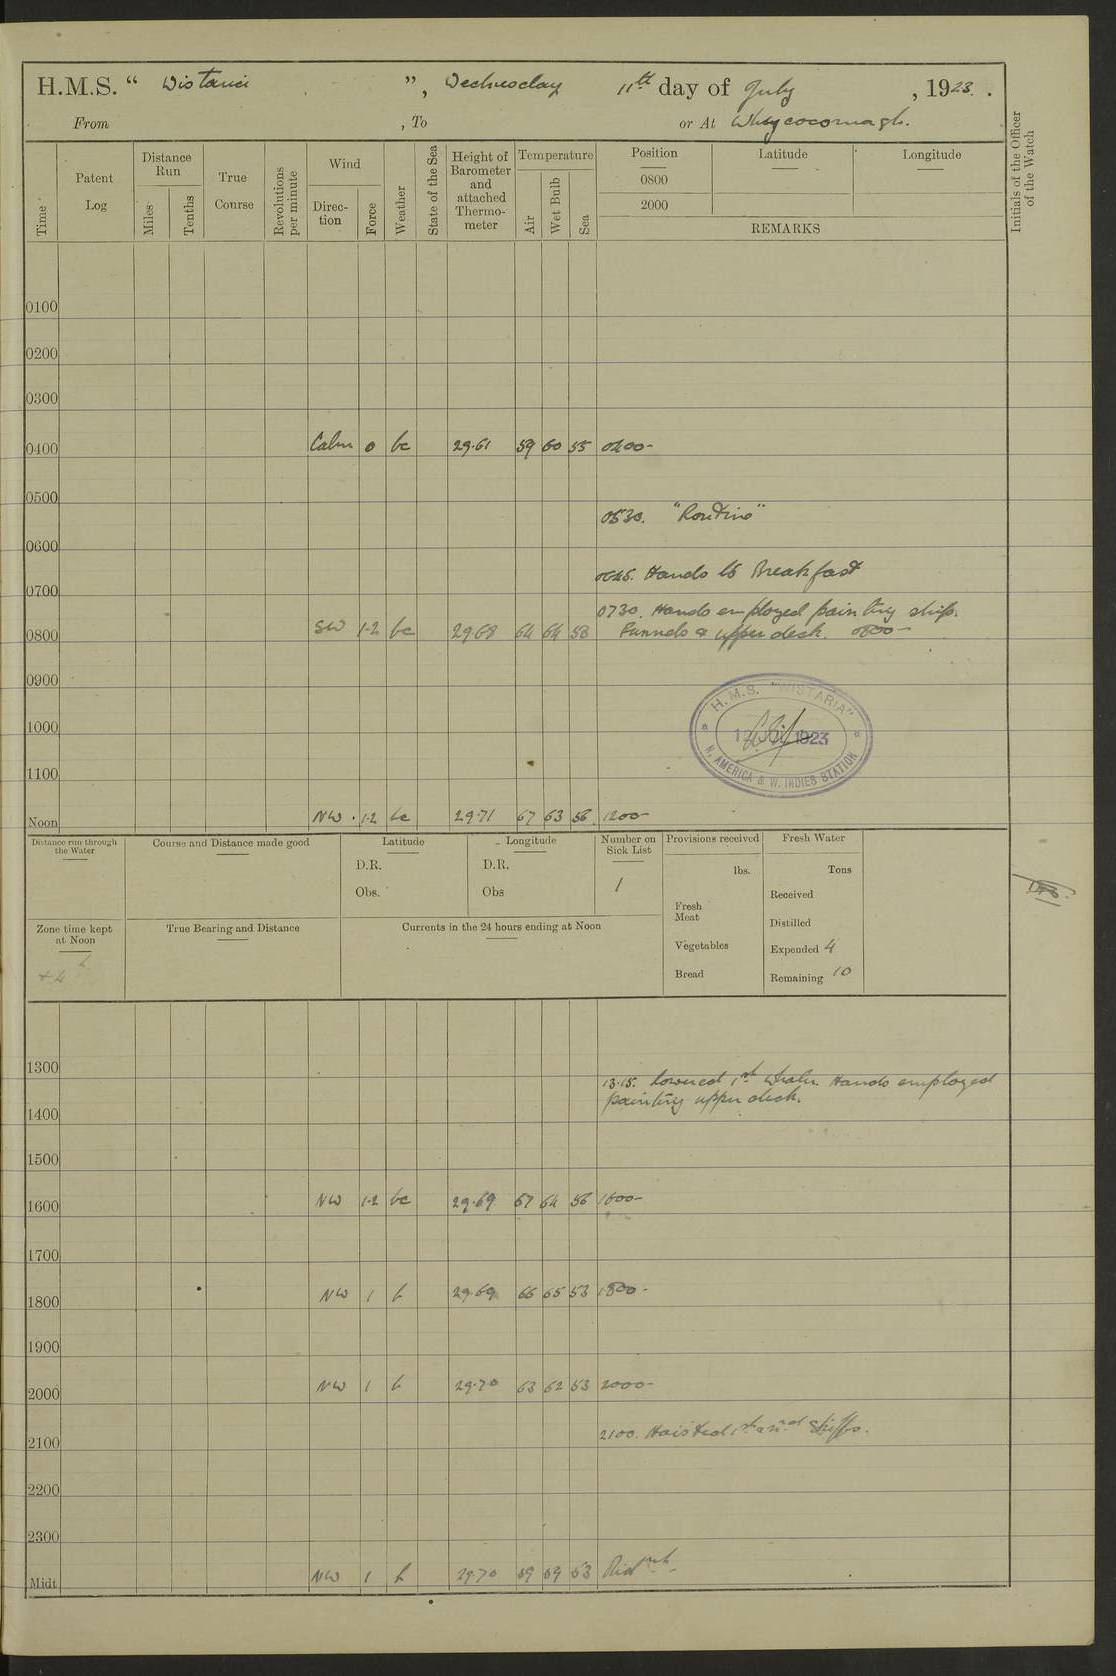 H.M.S. “ Wistaria ”, Wednesday 11th day of July , 1923 .
From , To or At Whycocomagh.
Time
Patent Log
Distance Run
Miles
Tenths
True Course
Revolutions per minute
Wind
Direc- tion
Force
Weather
State of the Sea
Height of Barometer and attached Thermo- meter
Temperature
Air
Wet Bulb
Sea
Position
0800
2000
Latitude
Longitude
REMARKS
Initials of the Officer of the Watch
0100
0200
0300
0400 Calm 0 bc 29.61 59 60 55 0400-
0500
0530. "Routine"
0600
0645. Hands to Breakfast
0700
0730. Hands employed painting ship.
0800 SW 1-2 bc 29.68 64 64 53 Funnels & upper deck. 0800-
0900
H.M.S. "WISTARIA"
1923
N. AMERICA & W. INDIES STATION
1000
1100
Noon NW 1-2 bc 29.71 67 63 56 1200-
Distance run through the Water
Course and Distance made good
Latitude
D.R.
Obs.
Longitude
D.R.
Obs
Number on Sick List
1
Provisions received
lbs.
Fresh Meat
Vegetables
Bread
Fresh Water
Tons
Received
Distilled
Expended 4
Remaining 10
Zone time kept at Noon
+4 h
True Bearing and Distance
Currents in the 24 hours ending at Noon
1300
13.15. Lowered 1st Whaler. Hands employed
painting upper deck.
1400
1500
1600 NW 1-2 bc 29.69 67 64 56 1600-
1700
1800 NW 1 b 29.69 66 65 53 1800-
1900
2000 NW 1 b 29.70 63 62 53 2000-
2100. Hoisted 1st a 2nd Skiffs.
2100
2200
2300
Midt NW 1 b 29.70 59 59 53 Midnt.